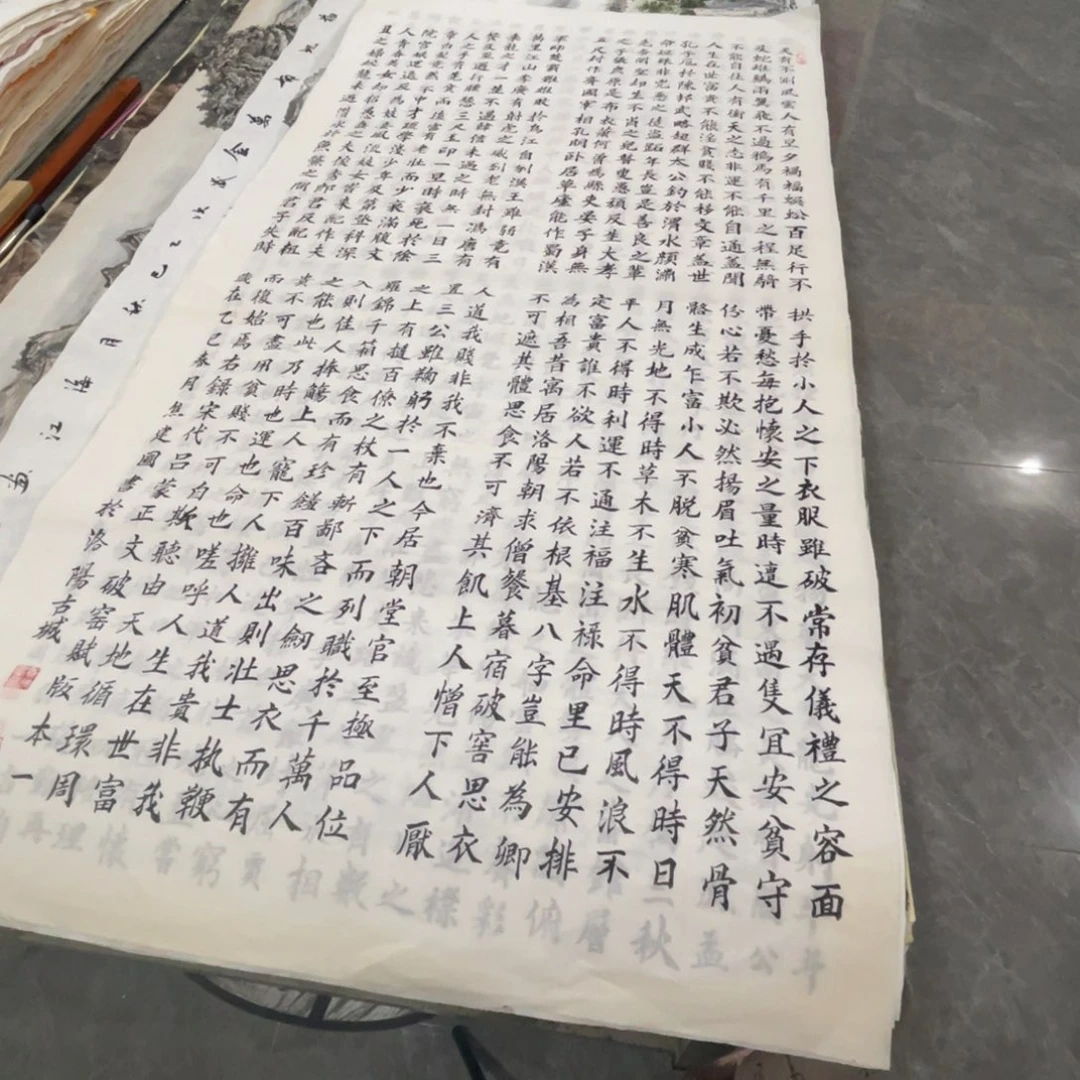 天有不測風雲人有旦夕禍福蜈蚣百足行不
及蛇雄鷄兩翼飛不過鴉馬有千里之程無騎
不能自往人有衝天之志非運不能自通蓋聞
人生在世富貴不能淫貧賤不能移文章蓋世
孔子厄於陳邦武略超群太公釣於渭水顏淵
命短殊非兇惡之徒盜跖年長豈是善良之輩
堯帝明聖卻生不肖之兒瞽叟愚頑反生大孝
之子張良原是布衣蕭何曾為縣吏晏子身無
五尺封作齊國宰相孔明卧居草廬能作蜀漢
軍師楚霸雖雄敗於烏江自刎漢王雖弱竟有
萬里江山李廣有射虎之威到老無封馮唐有
乘龍之才一生不遇韓信未遇之時無一日三
餐及至遇行腰懸三尺玉印一旦時衰死於陰
人之手有先貧而後富有老壯而少衰滿腹文
章白髮竟然不中才疏學淺少年及第登科深
院宮娥運退反為妓妾風流妓女時來配作夫
人青春美女卻招愚蠢之夫俊秀郎君反配粗
丑之婦蛟龍未遇潛水於魚蝦之間君子失時
拱手於小人之下衣服雖破常存儀禮之容面
帶憂愁每抱懷安之量時遭不遇隻宜安貧守
份心若不欺必然揚眉吐氣初貧君子天然骨
骼生成乍富小人不脫貧寒肌體天不得時日
月無光地不得時草木不生水不得時風浪不
平人不得時利運不通注福注祿命里已安排
定富貴誰不欲人若不依根基八字豈能為卿
為相吾昔寓居洛陽朝求僧餐暮宿破窖思衣
不可遮其體思食不可濟其飢上人憎下人厭
人道我賤非我不棄也今居朝堂官至極品位
置三公雖鞠躬於一人之下而列職於千萬人
之上有撻百僚之杖有斬鄙吝之劍思衣而有
羅錦千箱思食而有珍饈百味出則壯士執鞭
入則佳人捧觴上人寵下人擁人道我貴非我
之能也此乃時也運也命也嗟呼人生在世富
貴不可盡用貧賤不可自欺聽由天地循環周
而復始焉右錄宋代呂蒙正文破窑賦版本一
歲在乙巳春月焦建國書於洛陽古城
萬金歲次乙巳秋月海江畫